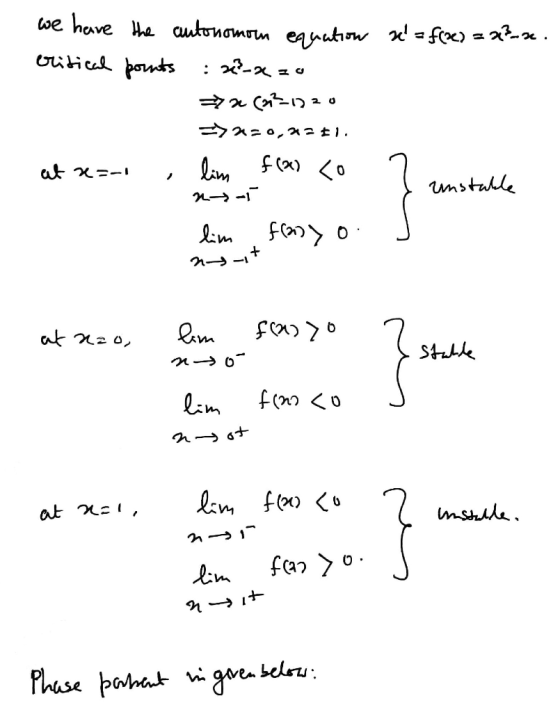 we have the autonomom equation x' = f(x) = x³-x.
Critical points : x³-x = 0
⇒ x (x²-1) = 0
⇒ x = 0, x = ±1.
at x=-1 , lim f(x) < 0
x→-1⁻
lim f(x) > 0.
x→-1⁺
} unstable
at x=0, lim f(x) > 0
x→0⁻
lim f(x) < 0
x→0+
} stable
at x=1, lim f(x) < 0
x→1⁻
lim f(x) > 0.
x→1+
} unstable.
Phase portrait is given below: